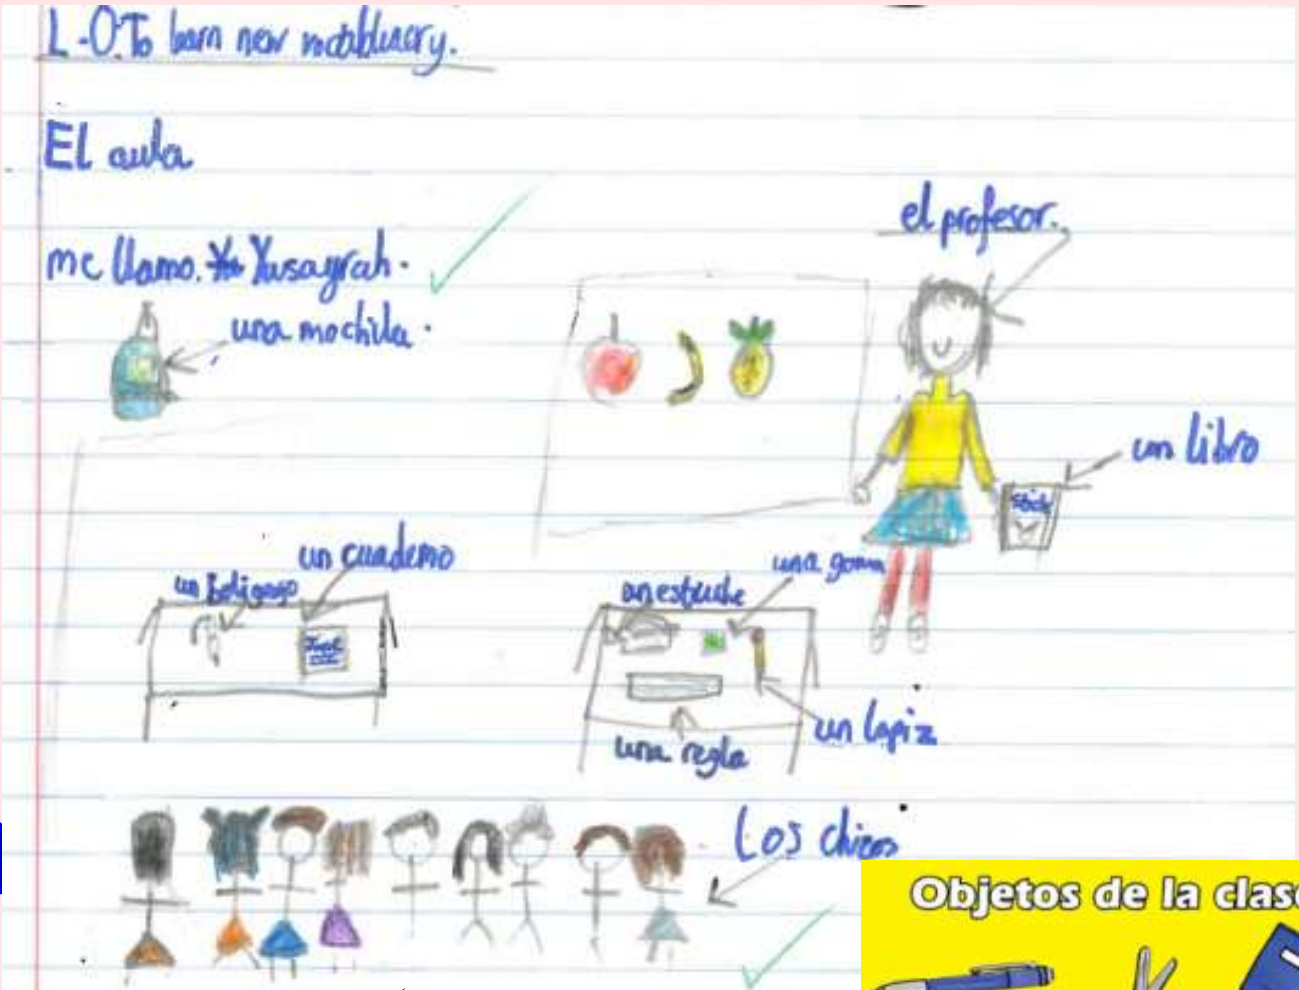 L-O: To learn new vocabluary.
El aula
me llamo. Yusayrah.
el profesor.
una mochila.
un libro
un cuaderno
una goma
un boligrago
an estuche
un lapiz
una regla
Los chicos
Objetos de la clase